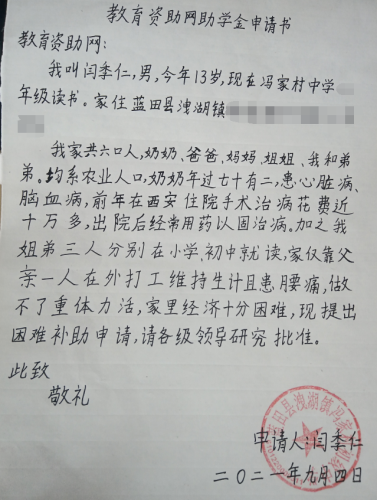 教育资助网助学金申请书
教育资助网:
我叫闫季仁,男,今年13岁,现在冯家村中学
年级读书。家住蓝田县洩湖镇
我家共六口人,奶奶、爸爸、妈妈、姐姐、我和弟
弟。均系农业人口,奶奶年过七十有二,患心脏病、
脑血病,前年在西安住院手术治病花费近
十万多,出院后经常用药以固治病。加之我
姐弟三人分别在小学、初中就读,家仅靠父
亲一人在外打工维持生计且患腰痛,做
不了重体力活,家里经济十分困难,现提出
困难补助申请,请各级领导研究批准。
此致
敬礼
申请人:闫季仁
二〇二一年九月四日